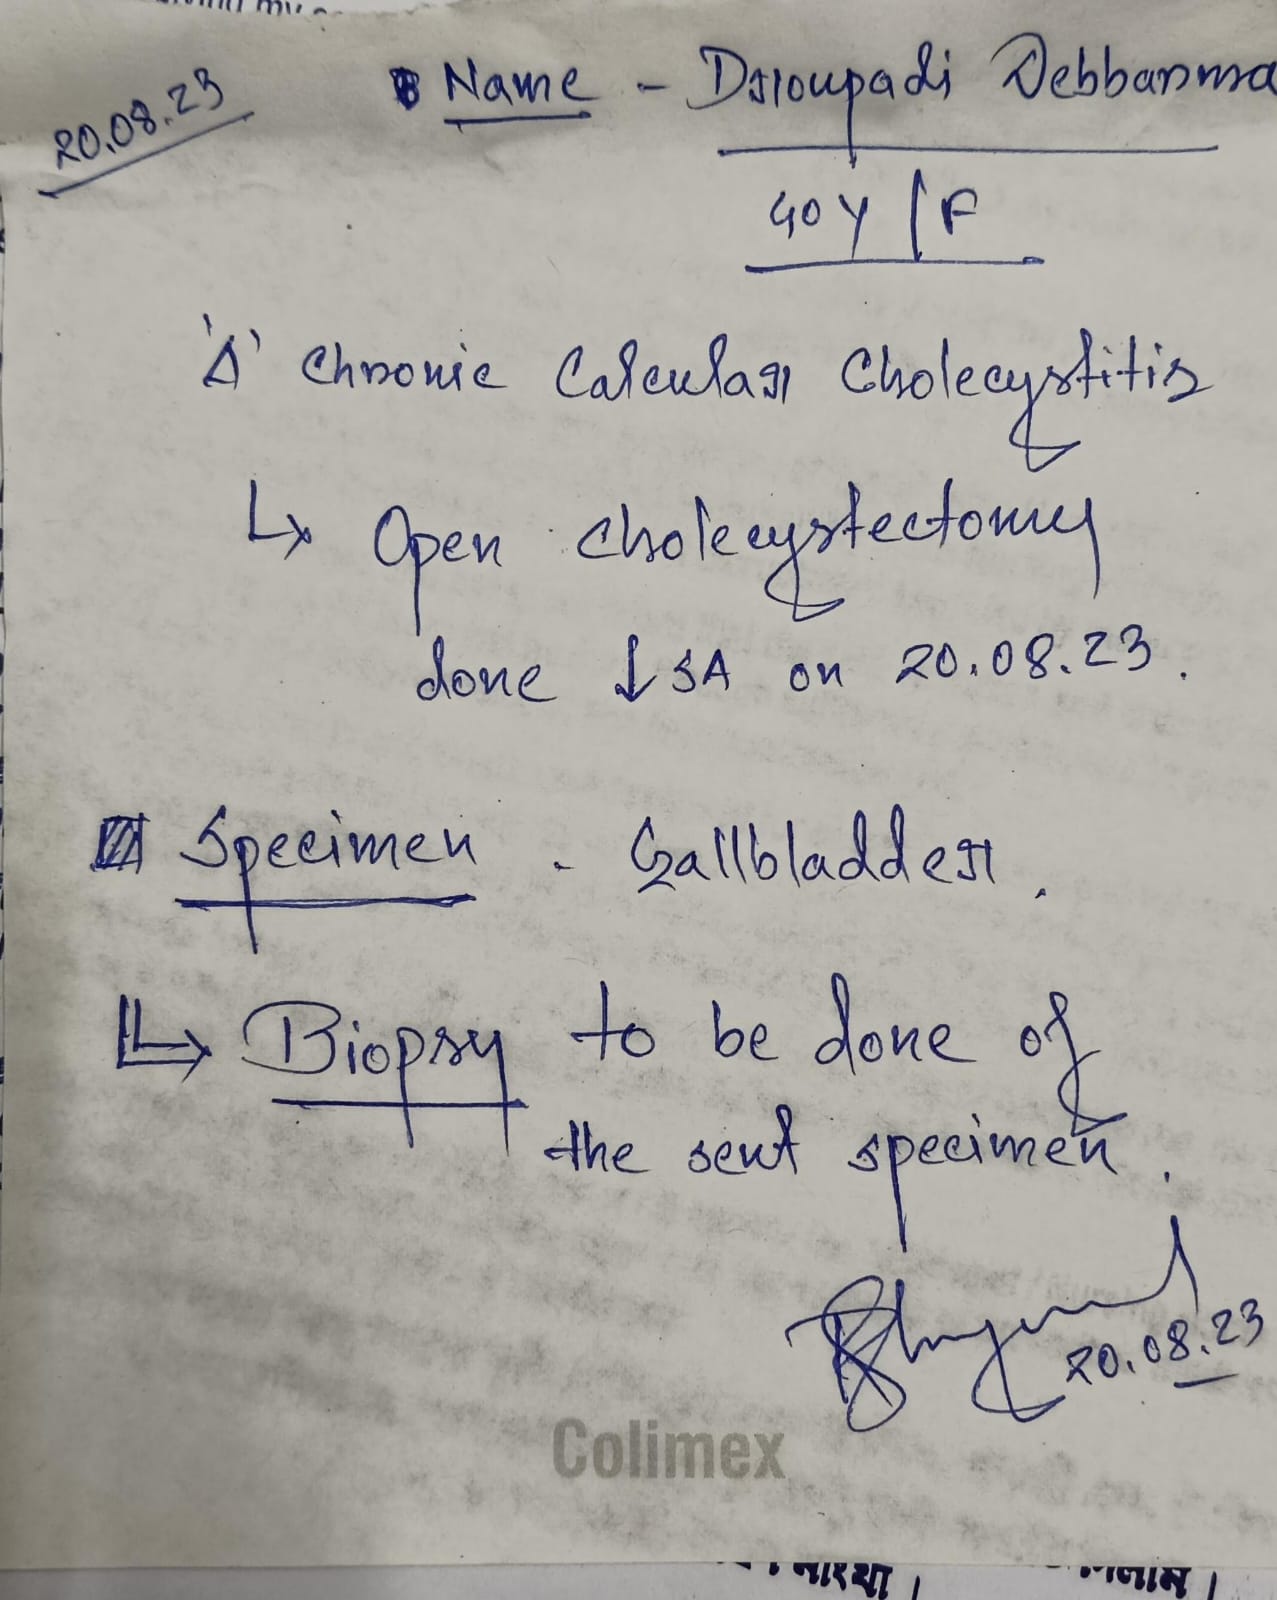 20.08.23
Name - Droupadi Debbarma
40Y/F
'Δ' Chronic Calcular Cholecystitis
↳ Open cholecystectomy
done ↓ SA on 20.08.23.
Specimen - Gallbladder.
↳ Biopsy to be done of
the sent specimen.
20.08.23
Colimex